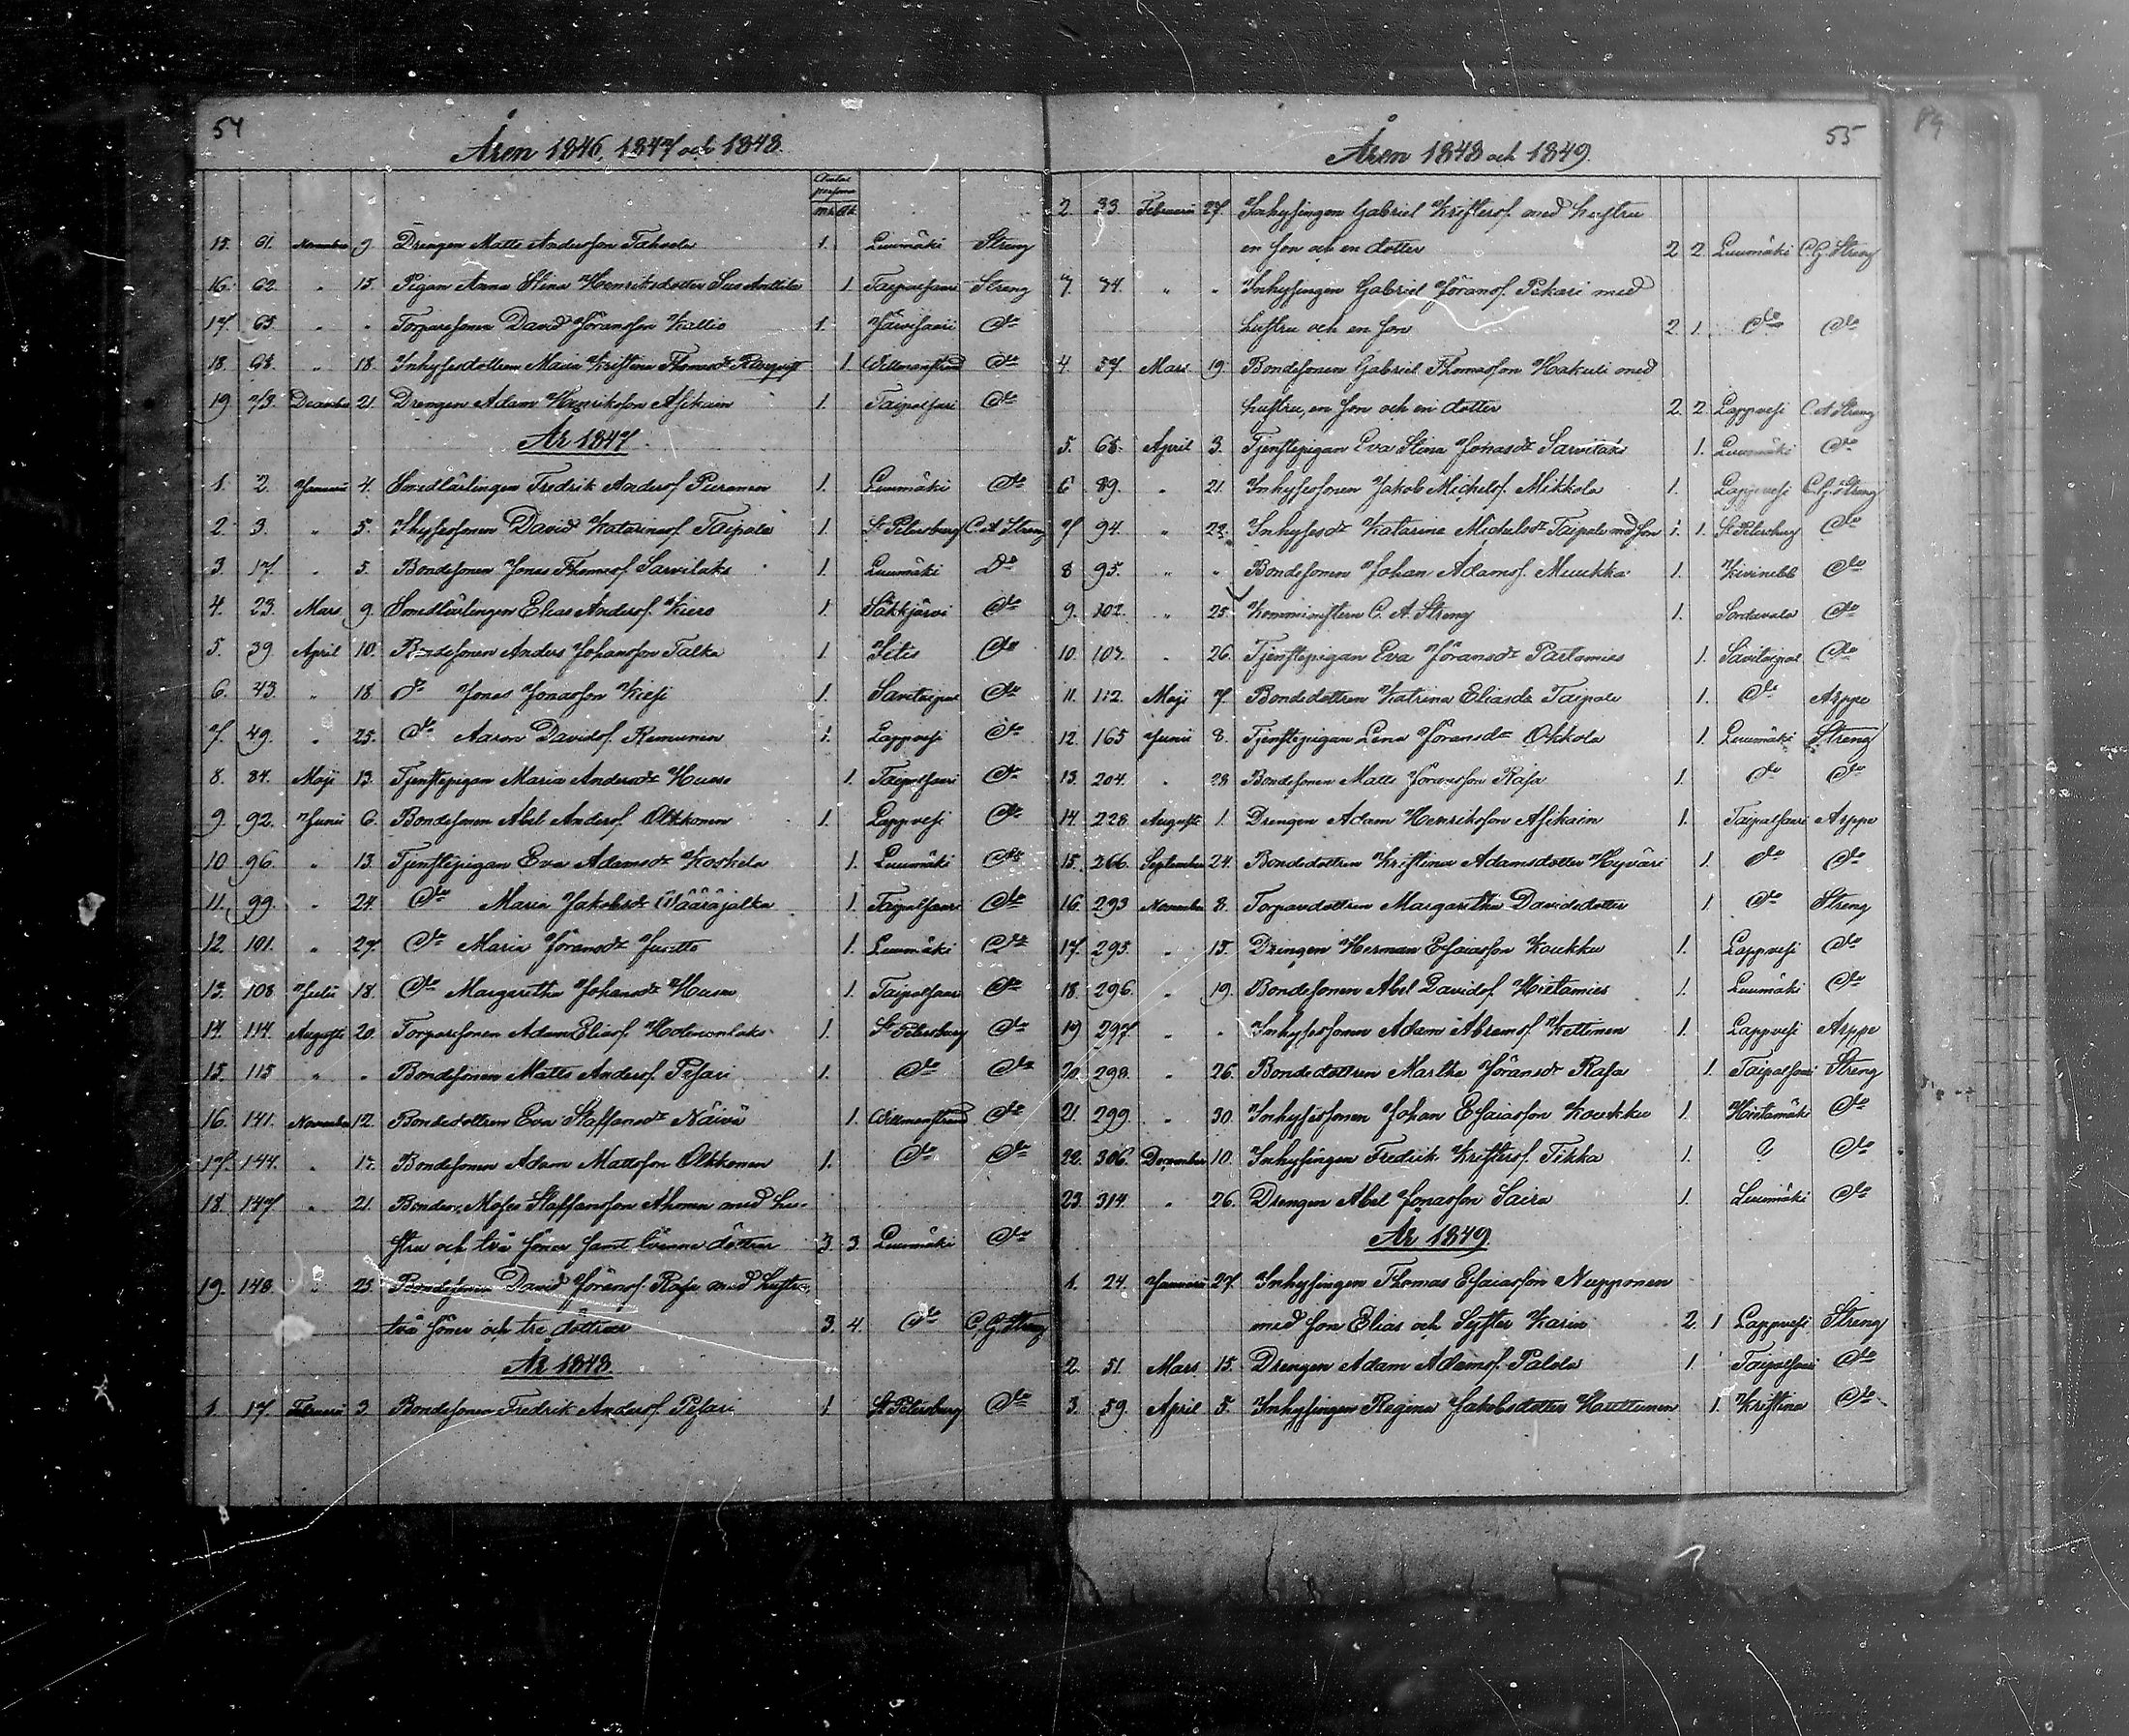 54
Åren 1846, 1847 och 1848.
Antal
persone
mk. qk.
15. 61. November 9. Drengen Matts Andersson Tahvola 1. Luumäki Streng
16. 62. " 15. Pigan Anna Stina Henriksdotter Sus Anttila 1. Taipalsaari Streng
17. 65. " " Torparesonen David Göransson Kallio 1. Järvisaari Do
18. 68. " 18. Inhysesdottren Maria Kristina Thomasdr 1. Willmanstrand Do
19. 73. December 21. Drengen Adam Henriksson Asikain 1. Taipalsari Do
År 1847.
1. 2. Januari 4. Smedlärlingen Fredrik Anderss. Puranen 1. Luumäki Do
2. 3. " 5. Ihysessonen David Katarinas. Taipale 1. St Petersburg C. A Streng
3. 17. " 5. Bondesonen Jonas Thomass. Sarvilaks 1. Luumäki Do
4. 23. Mars 9. Smedlärlingen Elias Anderss. Kiero 1. Säkkjärvi Do
5. 39. April 10. Bondesonen Anders Johansson Talka 1. Itis Do
6. 43. " 18. do Jonas Jonasson Kiesi 1. Savitaipal Do
7. 49. " 25. do Aaron Davids. Remunen 1. Lappvesi Do
8. 84. Maji 13. Tjenstepigan Maria Andersdr Husso 1. Taipalsaari Do
9. 92. Junii 6. Bondesonen Abel Anderss. Olkkonen 1. Lappvesi Do
10 96. " 13. Tjenstepigan Eva Adamsdr Koskela 1. Luumäki Do
11. 99. " 24. Do Maria Jakobsdr Wääräjalka 1. Taipalsaari Do
12. 101. " 27. Do Maria Göransdr 1. Luumäki Do
13. 108. Julii 18. Do Margaretha Johansdr Husu 1. Taipalsaari Do
14. 114. Augusti 20. Torparesonen Adam Eliass. Holmonlaks 1. St Petersburg Do
15. 115 " " Bondesonen Matts Anderss. Pesari 1. Do Do
16. 141. November 12. Bondedottren Eva Staffansdr Näivä 1. Willmanstrand Do
17. 144. " 17. Bondesonen Adam Mattsson Olkkonen 1. Do Do
18. 147. " 21. Bonden Moses Staffansson Ahonen med hu-
stru och två söner samt tvänne döttrar 3. 3. Luumäki Do
19. 148. " 25. Bondesonen David Görans. Rasa med hustru,
två söner och tre döttrar 3. 4. Do C. G. Streng
År 1848.
1. 17. Februari 3. Bondesonen Fredrik Anderss. Pesari 1. St Petersburg Do
55
Åren 1848 och 1849.
2. 33. Februari 27. Inhysingen Gabriel Kristers. med hustru
en son och en dotter 2 2. Luumäki C. G. Streng
34. " " Inhysingen Gabriel Görans. Pekari med
hustru och en son 2. 1. Do Do
4. 57. Mars 19. Bondesonen Gabriel Thomasson Hakuli med
hustru, en son och en dotter 2. 2. Lappvesi C. A Streng
5. 68. April 3. Tjenstepigan Eva Stina Jonasdr Sarvilaks 1. Luumäki Do
6 89. " 21. Inhysessonen Jakob Michels. Mikkola 1. Lappvesi C. G. Streng
7 94. " 22. Inhysesdr Katarina Michelsdr Taipale med son 1. 1. St Petersburg Do
8 95. " " Bondesonen Johan Adams. Muukka 1. Kivinebb Do
9. 102. " 25. Komministern C. A. Streng 1. Sordavala Do
10. 107. " 26. Tjenstepigan Eva Göransdr Partamies 1. Savitaipal Do
11. 112. Maji 7. Bondedottren Katrina Eliasdr Taipale 1. Do Arppe
12. 165 Junii 8. Tjenstepigan Lena Göransdr Ohkola 1. Luumäki Streng
13. 204. " 28 Bondesonen Matts Göransson Rasa 1. Do Do
14. 228. Augusti 1. Drengen Adam Henriksson Asikain 1. Taipalsaari Arppe
15. 266. September 24. Bondedottren Kristina Adamsdotter Hyväri 1. Do Do
16. 293 November 8. Torpardottren Margaretha Davidsdotter 1. Do Streng
17. 295. " 15. Drengen Herman Esaiasson Koukku 1. Lappvesi Do
18. 296. " 19. Bondesonen Abel Davids. Hietamies 1. Luumäki Do
19 297. " " Inhysessonen Adam Abrams. Kettunen 1. Lappvesi Arppe
20. 298. " 26. Bondedottren Martha Göransdr Rasa 1. Taipalsaari Streng
21. 299. " 30. Inhysessonen Johan Esaiasson Koukku 1. Hietamäki Do
22. 306. December 10. Inhysingen Fredrik Kristers. Tikka 1. ? Do
23. 314. " 26. Drengen Abel Jonasson Saira 1. Luumäki Do
År 1849
1. 24. Januari 27. Inhysingen Thomas Esaiasson Nupponen
med son Elias och Syster Karin 2. 1 Lappvesi Streng
2. 51. Mars 15. Drengen Adam Adams. Palola 1. Taipalsaari Do
3. 59. April 5. Inhysingen Regina Jakobsdotter Hauttunen 1. Kristina Do
89